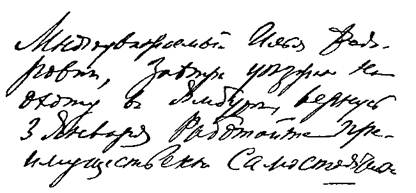 Многоуважаемый Илья Вол-
кович, Завтра уезжаю на
охоту в Ямбург, вернусь
3 Января Работайте пре-
имущественно Самостоятельно